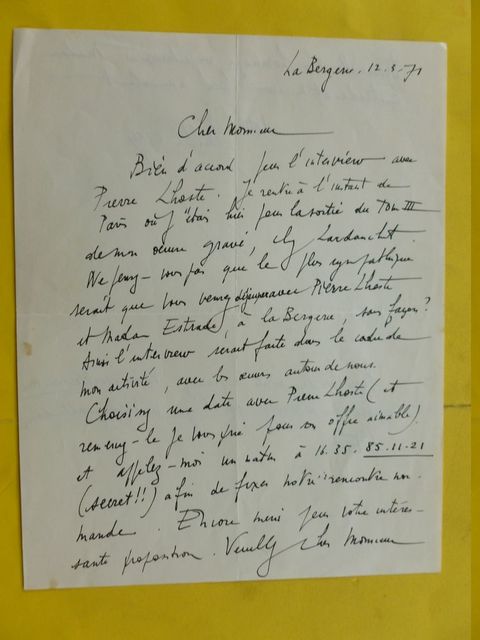 La Bergerie. 12.5.71
Cher Monsieur
Bien d'accord pour l'interview avec
Pierre Lhoste. Je rentre à l'instant de
Paris où j'étais hier pour la sortie du Tom III
de mon œuvre gravé, chez Lardanchet.
Ne pensez-vous pas que le plus sympathique
serait que vous veniez déjeuner avec Pierre Lhoste
et Madam Estrade, à la Bergerie, sans façons?
Ainsi l'interview serait faite dans le cadre de
mon activité, avec les œuvres autour de nous.
Choisissez une date avec Pierre Lhoste (et
remerciez-le je vous prie pour son offre aimable)
et appelez-moi un matin à 16.35.85.11.21
(secret!!) afin de fixer notre rencontre nor-
mande. Encore merci pour votre intéres-
sante proposition. Veuillez cher Monsieur